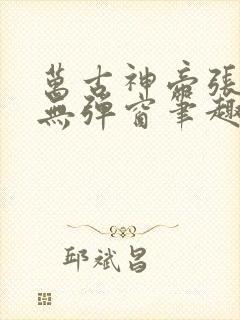 萬古神帝張
無彈窗筆趣
邱斌昌